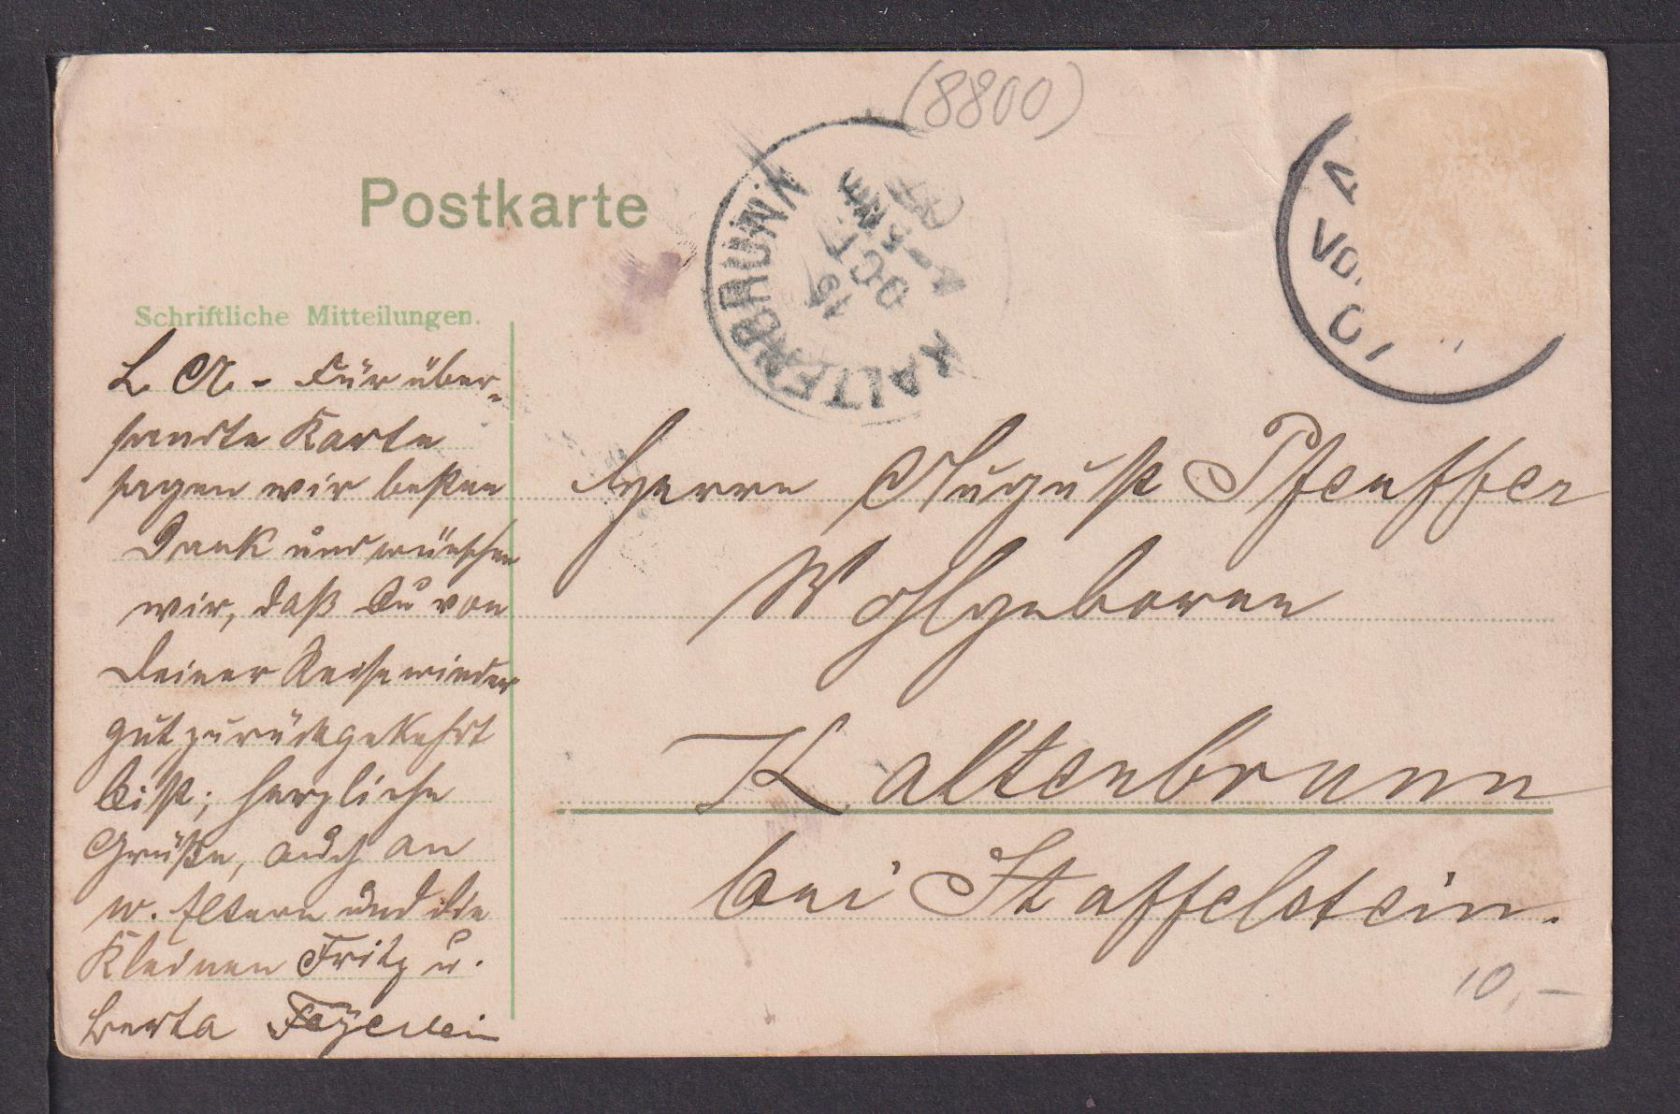 (8800)
Postkarte
KALTENBRUNN
19
OCT
4-5 NM
A
Vo
07
Schriftliche Mitteilungen.
L. A. - Für über-
sandte Karte
sagen wir besten
Dank und wünschen
wir, daß Du von
Deiner Reise wieder
gut zurückgekehrt
bist; herzliche
Grüße, auch an
w. Eltern und die
Kleinen Fritz u.
Berta
Herrn August Pfeuffer
Wohlgeboren
Kaltenbrunn
bei Staffelstein.
10,-